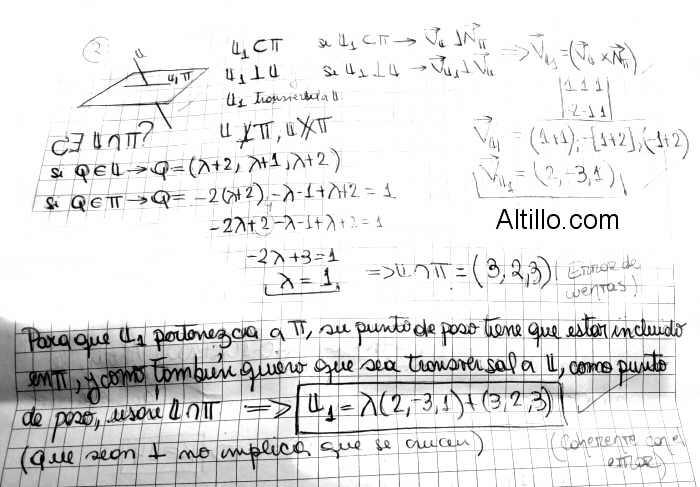 2
𝕃
𝕃₁ π
𝕃₁ ⊂ π si 𝕃₁ ⊂ π → V⃗𝕃₁ ⊥ N⃗π ⇒ V⃗𝕃₁ = (V⃗𝕃 × N⃗π)
𝕃₁ ⊥ 𝕃 si 𝕃₁ ⊥ 𝕃 → V⃗𝕃₁ ⊥ V⃗𝕃
| 1 1 1 |
| 2 -1 1 |
𝕃₁ transversal a 𝕃
¿∃ 𝕃∩π? 𝕃 ⊄ π, 𝕃 ∦ π
V⃗𝕃₁ = (1+1), -[1+2], (-1+2)
si Q∈𝕃 → Q = (λ+2, λ+1, λ+2)
V⃗𝕃₁ = (2, -3, 1)
si Q∈π → Q = -2(λ+2) - λ-1+λ+2 = 1
Altillo.com
-2λ+2-λ-1+λ+2=1
-2λ+3=1
λ = 1 ⇒ 𝕃∩π = (3,2,3) (Error de
cuentas)
Para que 𝕃₁ pertenezca a π, su punto de paso tiene que estar incluido
en π, y como también quiero que sea transversal a 𝕃, como punto
de paso, usaré 𝕃∩π ⇒ 𝕃₁ = λ(2,-3,1)+(3,2,3)
(Que sean ⊥ no implica que se crucen) (Coherente con el
error)